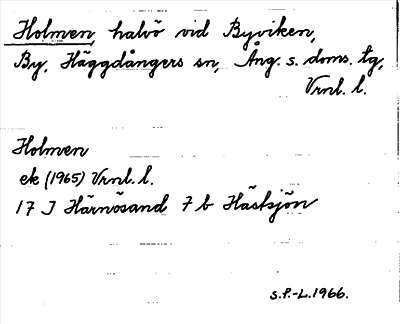 Holmen, halvö vid Byviken,
By, Häggdångers sn, Ång. s. doms. tg,
Vrnl. l.
Holmen
ek (1965) Vrnl. l.
17 J Härnösand 7 b Hästsjön
S.P.-L. 1966.